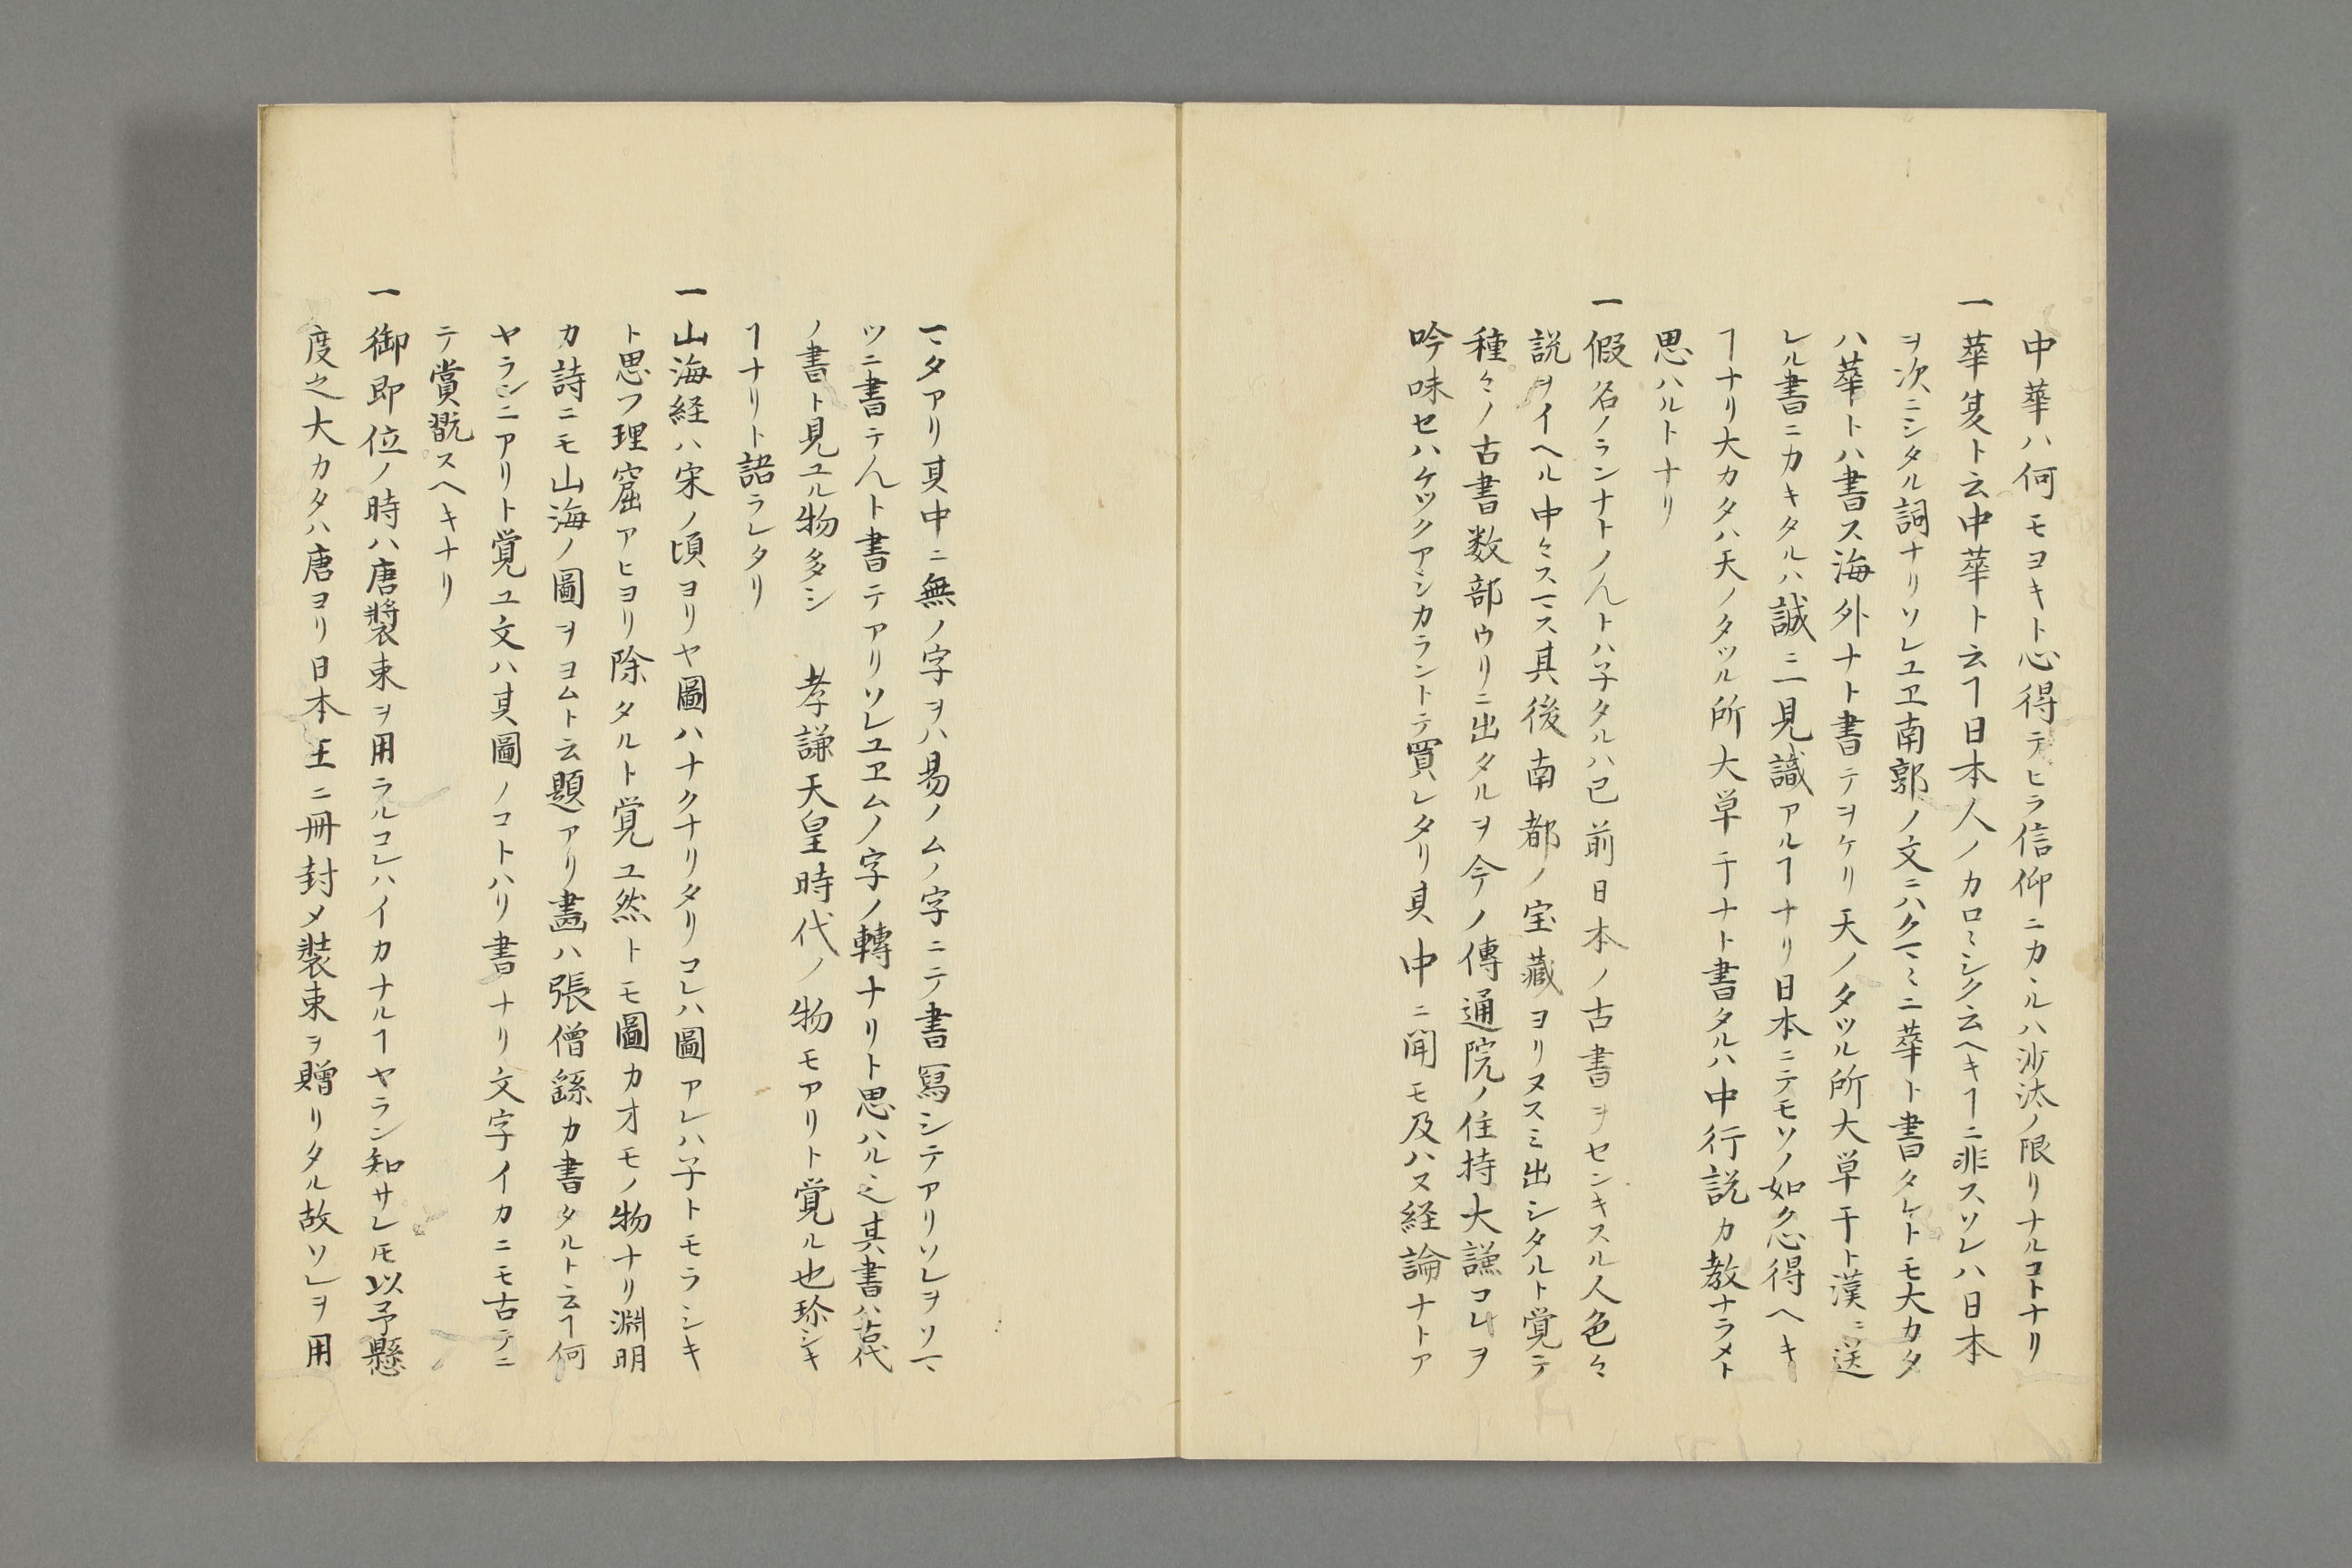 中華ハ何モヨキト心得テヒラ信仰ニカヽルハ沙汰ノ限リナルコトナリ
一華夏ト云中華ト云ヿ日本人ノカロミシク云ヘキヿニ非スソレハ日本
ヲ次ニシタル詞ナリソレユヱ南郭ノ文ニハクマミニ華ト書タレトモ大カタ
ハ華トハ書ス海外ナト書テヲケリ天ノタツル所大草干ト漢ニ送
レル書ニカキタルハ誠ニ見識アルヿナリ日本ニテモソノ如ク心得ヘキ
ヿナリ大カタハ天ノタツル所大草干ナト書タルハ中行説カ教ナラメト
思ハルトナリ
一假名ノランナトノんトハネタルハ已前日本ノ古書ヲセンキスル人色々
説ヲイヘル中々スマス其後南都ノ宝藏ヨリヌスミ出シタルト覚テ
種々ノ古書数部ウリニ出タルヲ今ノ傳通院ノ住持大謙コレヲ
吟味セハケツクアシカラントテ買レタリ其中ニ聞モ及ハヌ経論ナトア
マタアリ其中ニ無ノ字ヲハ易ノムノ字ニテ書冩シテアリソレヲソマ
ツニ書テんト書テアリソレユヱムノ字ノ轉ナリト思ハルヽ之其書ハ古代
ノ書ト見ユル物多シ　孝謙天皇時代ノ物モアリト覚ル也珍シキ
ヿナリト語ラレタリ
一山海経ハ宋ノ頃ヨリヤ圖ハナクナリタリコレハ圖アレハ子トモラシキ
ト思フ理窟アヒヨリ除タルト覚ユ然トモ圖カオモノ物ナリ淵明
カ詩ニモ山海ノ圖ヲヨムト云題アリ畵ハ張僧繇カ書タルト云ヿ何
ヤランニアリト覚ユ文ハ其圖ノコトハリ書ナリ文字イカニモ古テニ
テ賞翫スヘキナリ
一御即位ノ時ハ唐裝束ヲ用ラルコレハイカナルヿヤラン知サレ𪜈以予懸
度之大カタハ唐ヨリ日本王ニ冊封メ装束ヲ贈リタル故ソレヲ用